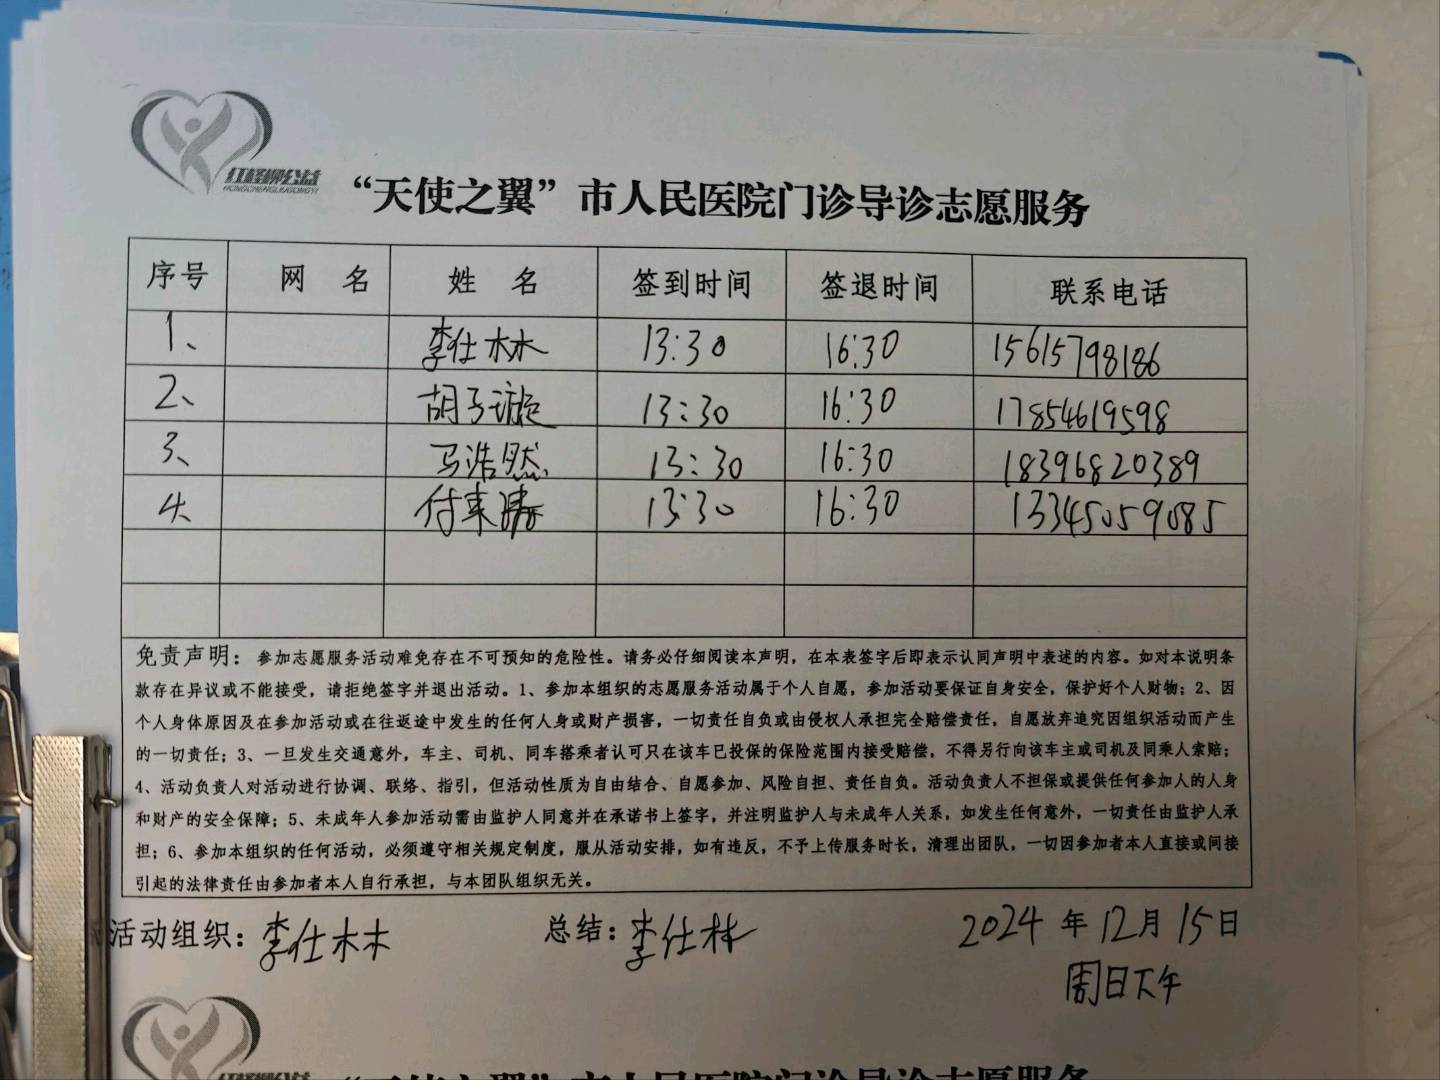 红柽柳公益
HONGCHENGLIUGONGYI
“天使之翼”市人民医院门诊导诊志愿服务
序号 网 名 姓 名 签到时间 签退时间 联系电话
1、 李仕林 13:30 16:30 15615798186
2、 胡子漩 13:30 16:30 17854619598
3、 马浩然 13:30 16:30 18396820389
4、 付来 13:30 16:30 13345059085
免责声明：参加志愿服务活动难免存在不可预知的危险性。请务必仔细阅读本声明，在本表签字后即表示认同声明中表述的内容。如对本说明条
款存在异议或不能接受，请拒绝签字并退出活动。1、参加本组织的志愿服务活动属于个人自愿，参加活动要保证自身安全，保护好个人财物；2、因
个人身体原因及在参加活动或在往返途中发生的任何人身或财产损害，一切责任自负或由侵权人承担完全赔偿责任，自愿放弃追究因组织活动而产生
的一切责任；3、一旦发生交通意外，车主、司机、同车搭乘者认可只在该车已投保的保险范围内接受赔偿，不得另行向该车主或司机及同乘人索赔；
4、活动负责人对活动进行协调、联络、指引，但活动性质为自由结合、自愿参加、风险自担、责任自负。活动负责人不担保或提供任何参加人的人身
和财产的安全保障；5、未成年人参加活动需由监护人同意并在承诺书上签字，并注明监护人与未成年人关系，如发生任何意外，一切责任由监护人承
担；6、参加本组织的任何活动，必须遵守相关规定制度，服从活动安排，如有违反，不予上传服务时长，清理出团队，一切因参加者本人直接或间接
引起的法律责任由参加者本人自行承担，与本团队组织无关。
活动组织：李仕林 总结：李仕林 2024 年 12 月 15 日
周日下午
红柽柳公益
“天使之翼”市人民医院门诊导诊志愿服务